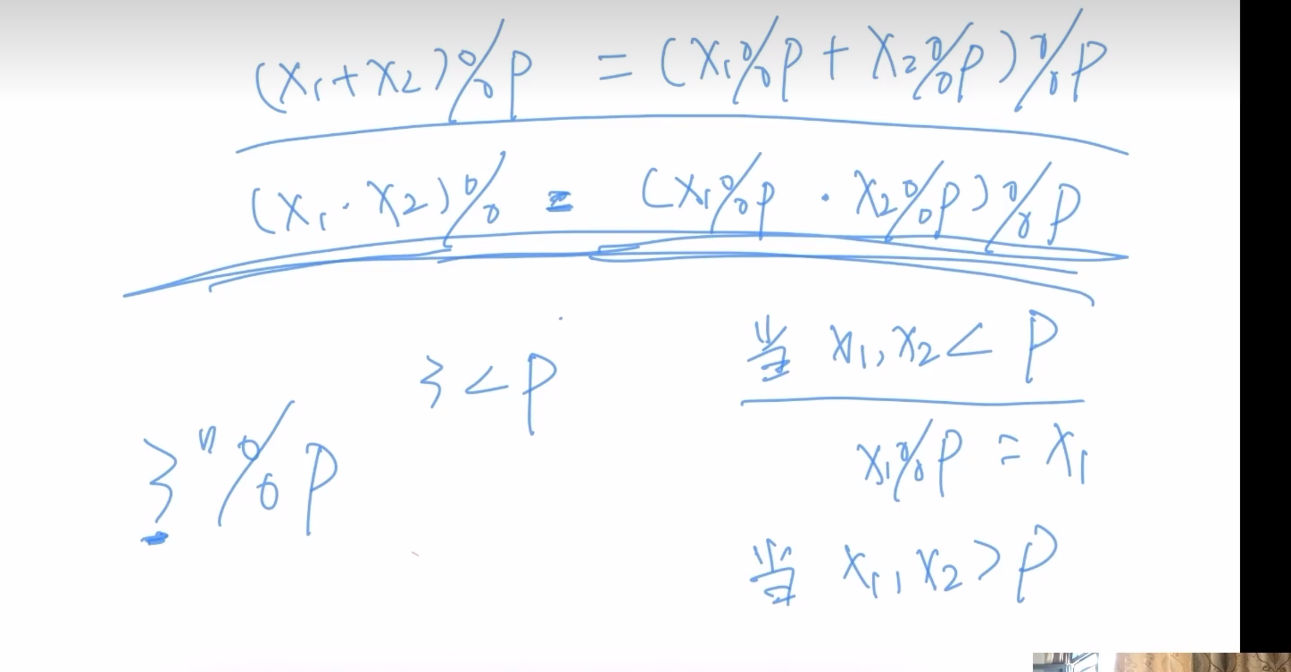 (x₁+x₂)%p = (x₁%p + x₂%p)%p
(x₁·x₂)% = (x₁%p · x₂%p)%p
当 x₁,x₂< p
3<p
x₁%p = x₁
3ⁿ%p
当 x₁,x₂>p